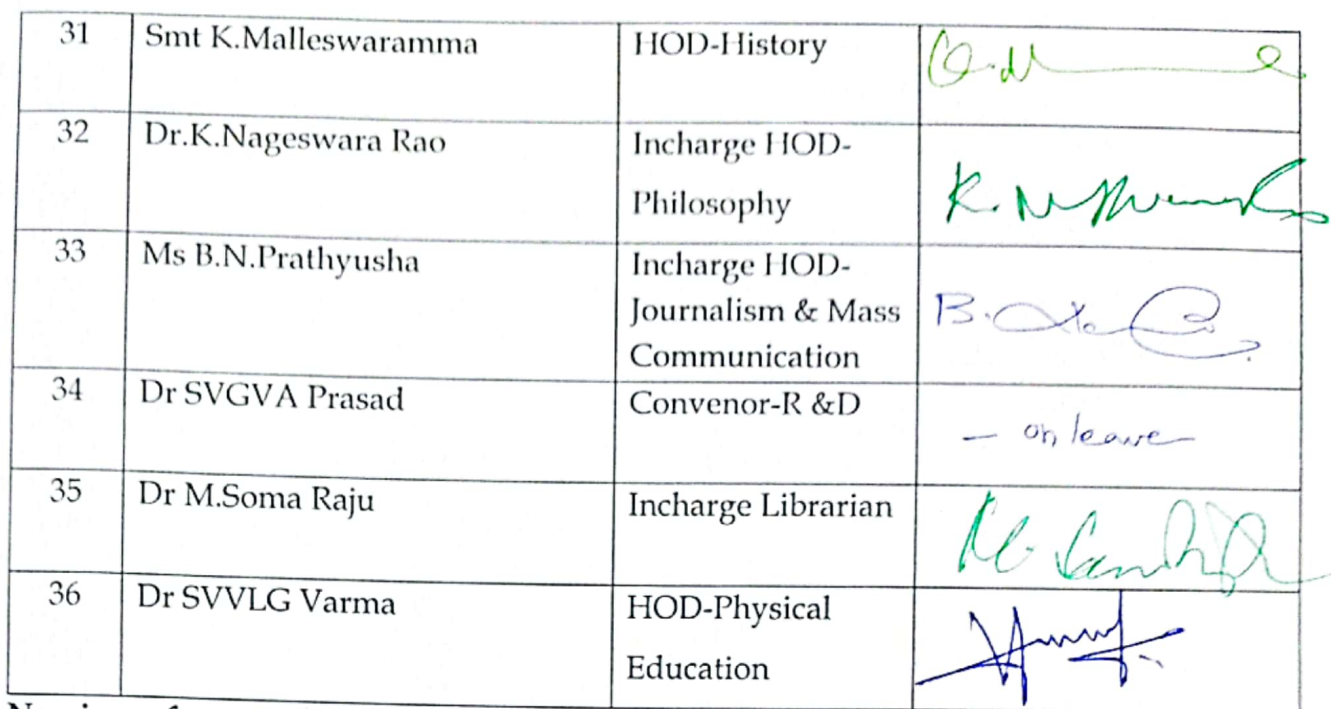 31 Smt K.Malleswaramma HOD-History
32 Dr.K.Nageswara Rao Incharge HOD-
Philosophy
33 Ms B.N.Prathyusha Incharge HOD-
Journalism & Mass
Communication
34 Dr SVGVA Prasad Convenor-R &D
- on leave
35 Dr M.Soma Raju Incharge Librarian
36 Dr SVVLG Varma HOD-Physical
Education